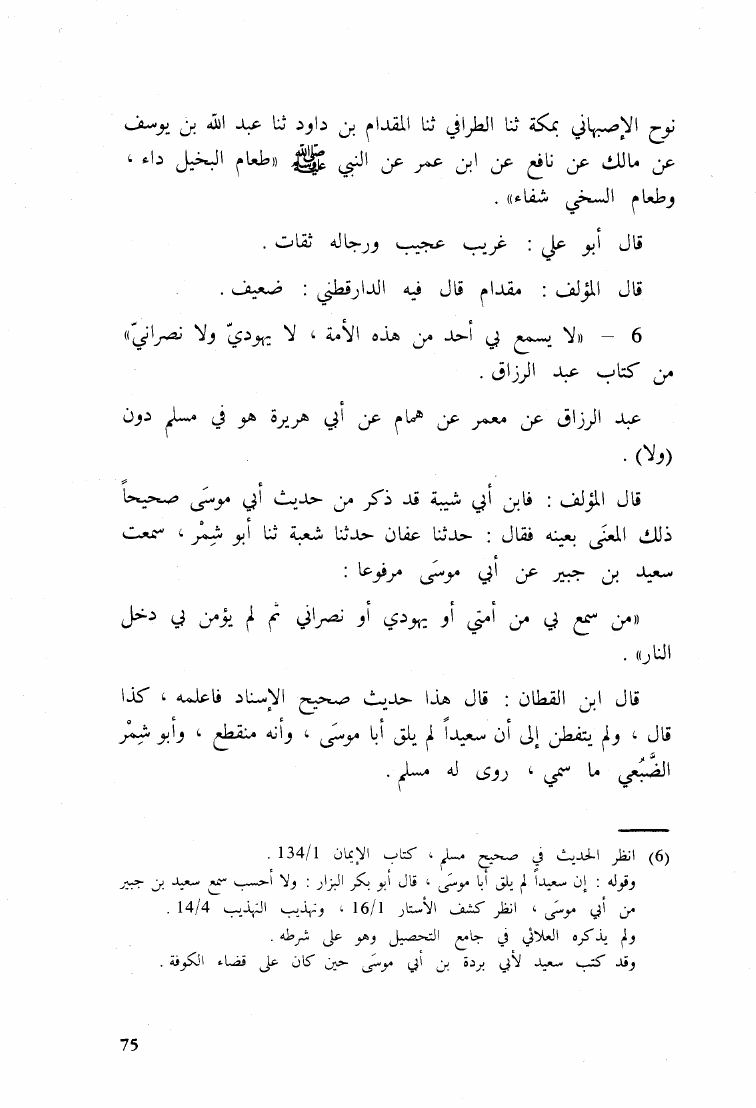 نوح الإصبهاني بمكة ثنا الطرافي ثنا المقدام بن داود ثنا عبد الله بن يوسف
عن مالك عن نافع عن ابن عمر عن النبي ﷺ «طعام البخيل داء ،
وطعام السخي شفاء» .
قال أبو علي : غريب عجيب ورجاله ثقات .
قال المؤلف : مقدام قال فيه الدارقطني : ضعيف .
6 – «لا يسمع بي أحد من هذه الأمة ، لا يهوديّ ولا نصرانيّ»
من كتاب عبد الرزاق .
عبد الرزاق عن معمر عن همام عن أبي هريرة هو في مسلم دون
(ولا) .
قال المؤلف : فابن أبي شيبة قد ذكر من حديث أبي موسَى صحيحاً
ذلك المعنَى بعينه فقال : حدثنا عفان حدثنا شعبة ثنا أبو شِمْر ، سمعت
سعيد بن جبير عن أبي موسَى مرفوعا :
«من سمع بي من أمتي أو يهودي أو نصراني ثم لم يؤمن بي دخل
النار» .
قال ابن القطان : قال هذا حديث صحيح الإسناد فاعلمه ، كذا
قال ، ولم يتفطن إلى أن سعيداً لم يلق أبا موسَى ، وأنه منقطع ، وأبو شِمْر
الضُّبَعي ما سمي ، روى له مسلم .
(6) انظر الحديث في صحيح مسلم ، كتاب الإيمان 134/1 .
وقوله : إن سعيداً لم يلق أبا موسَى ، قال أبو بكر البزار : ولا أحسب سمع سعيد بن جبير
من أبي موسَى ، انظر كشف الأستار 16/1 ، وتهذيب التهذيب 14/4 .
ولم يذكره العلائي في جامع التحصيل وهو على شرطه .
وقد كتب سعيد لأبي بردة بن أبي موسَى حين كان على قضاء الكوفة .
75